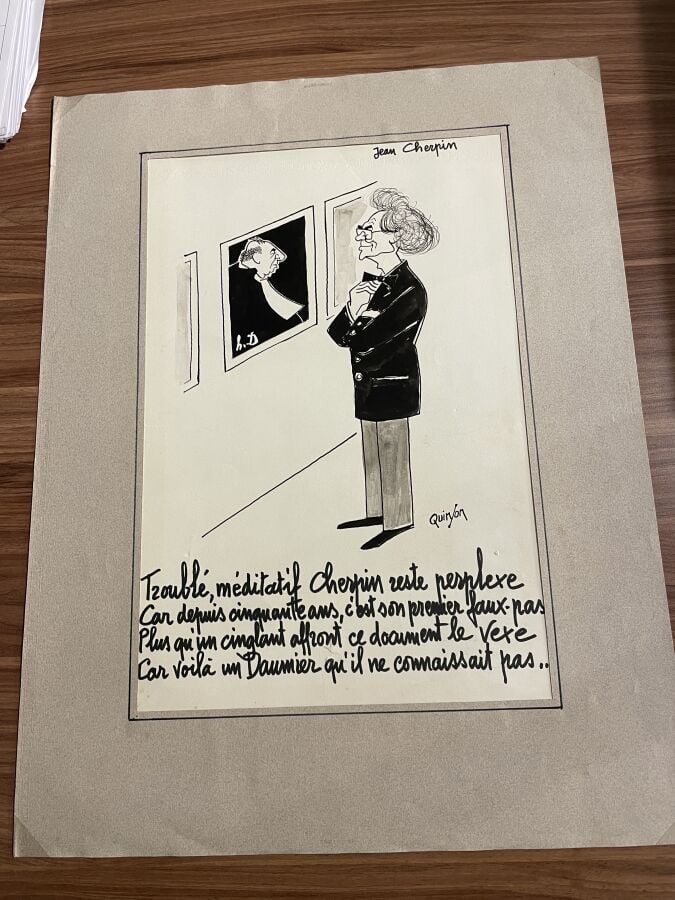 Jean Cherpin
h.D
Quinson
Troublé, méditatif Cherpin reste perplexe
Car depuis cinquante ans, c'est son premier faux-pas
Plus qu'un cinglant affront ce document le vexe
Car voilà un Daumier qu'il ne connaissait pas..